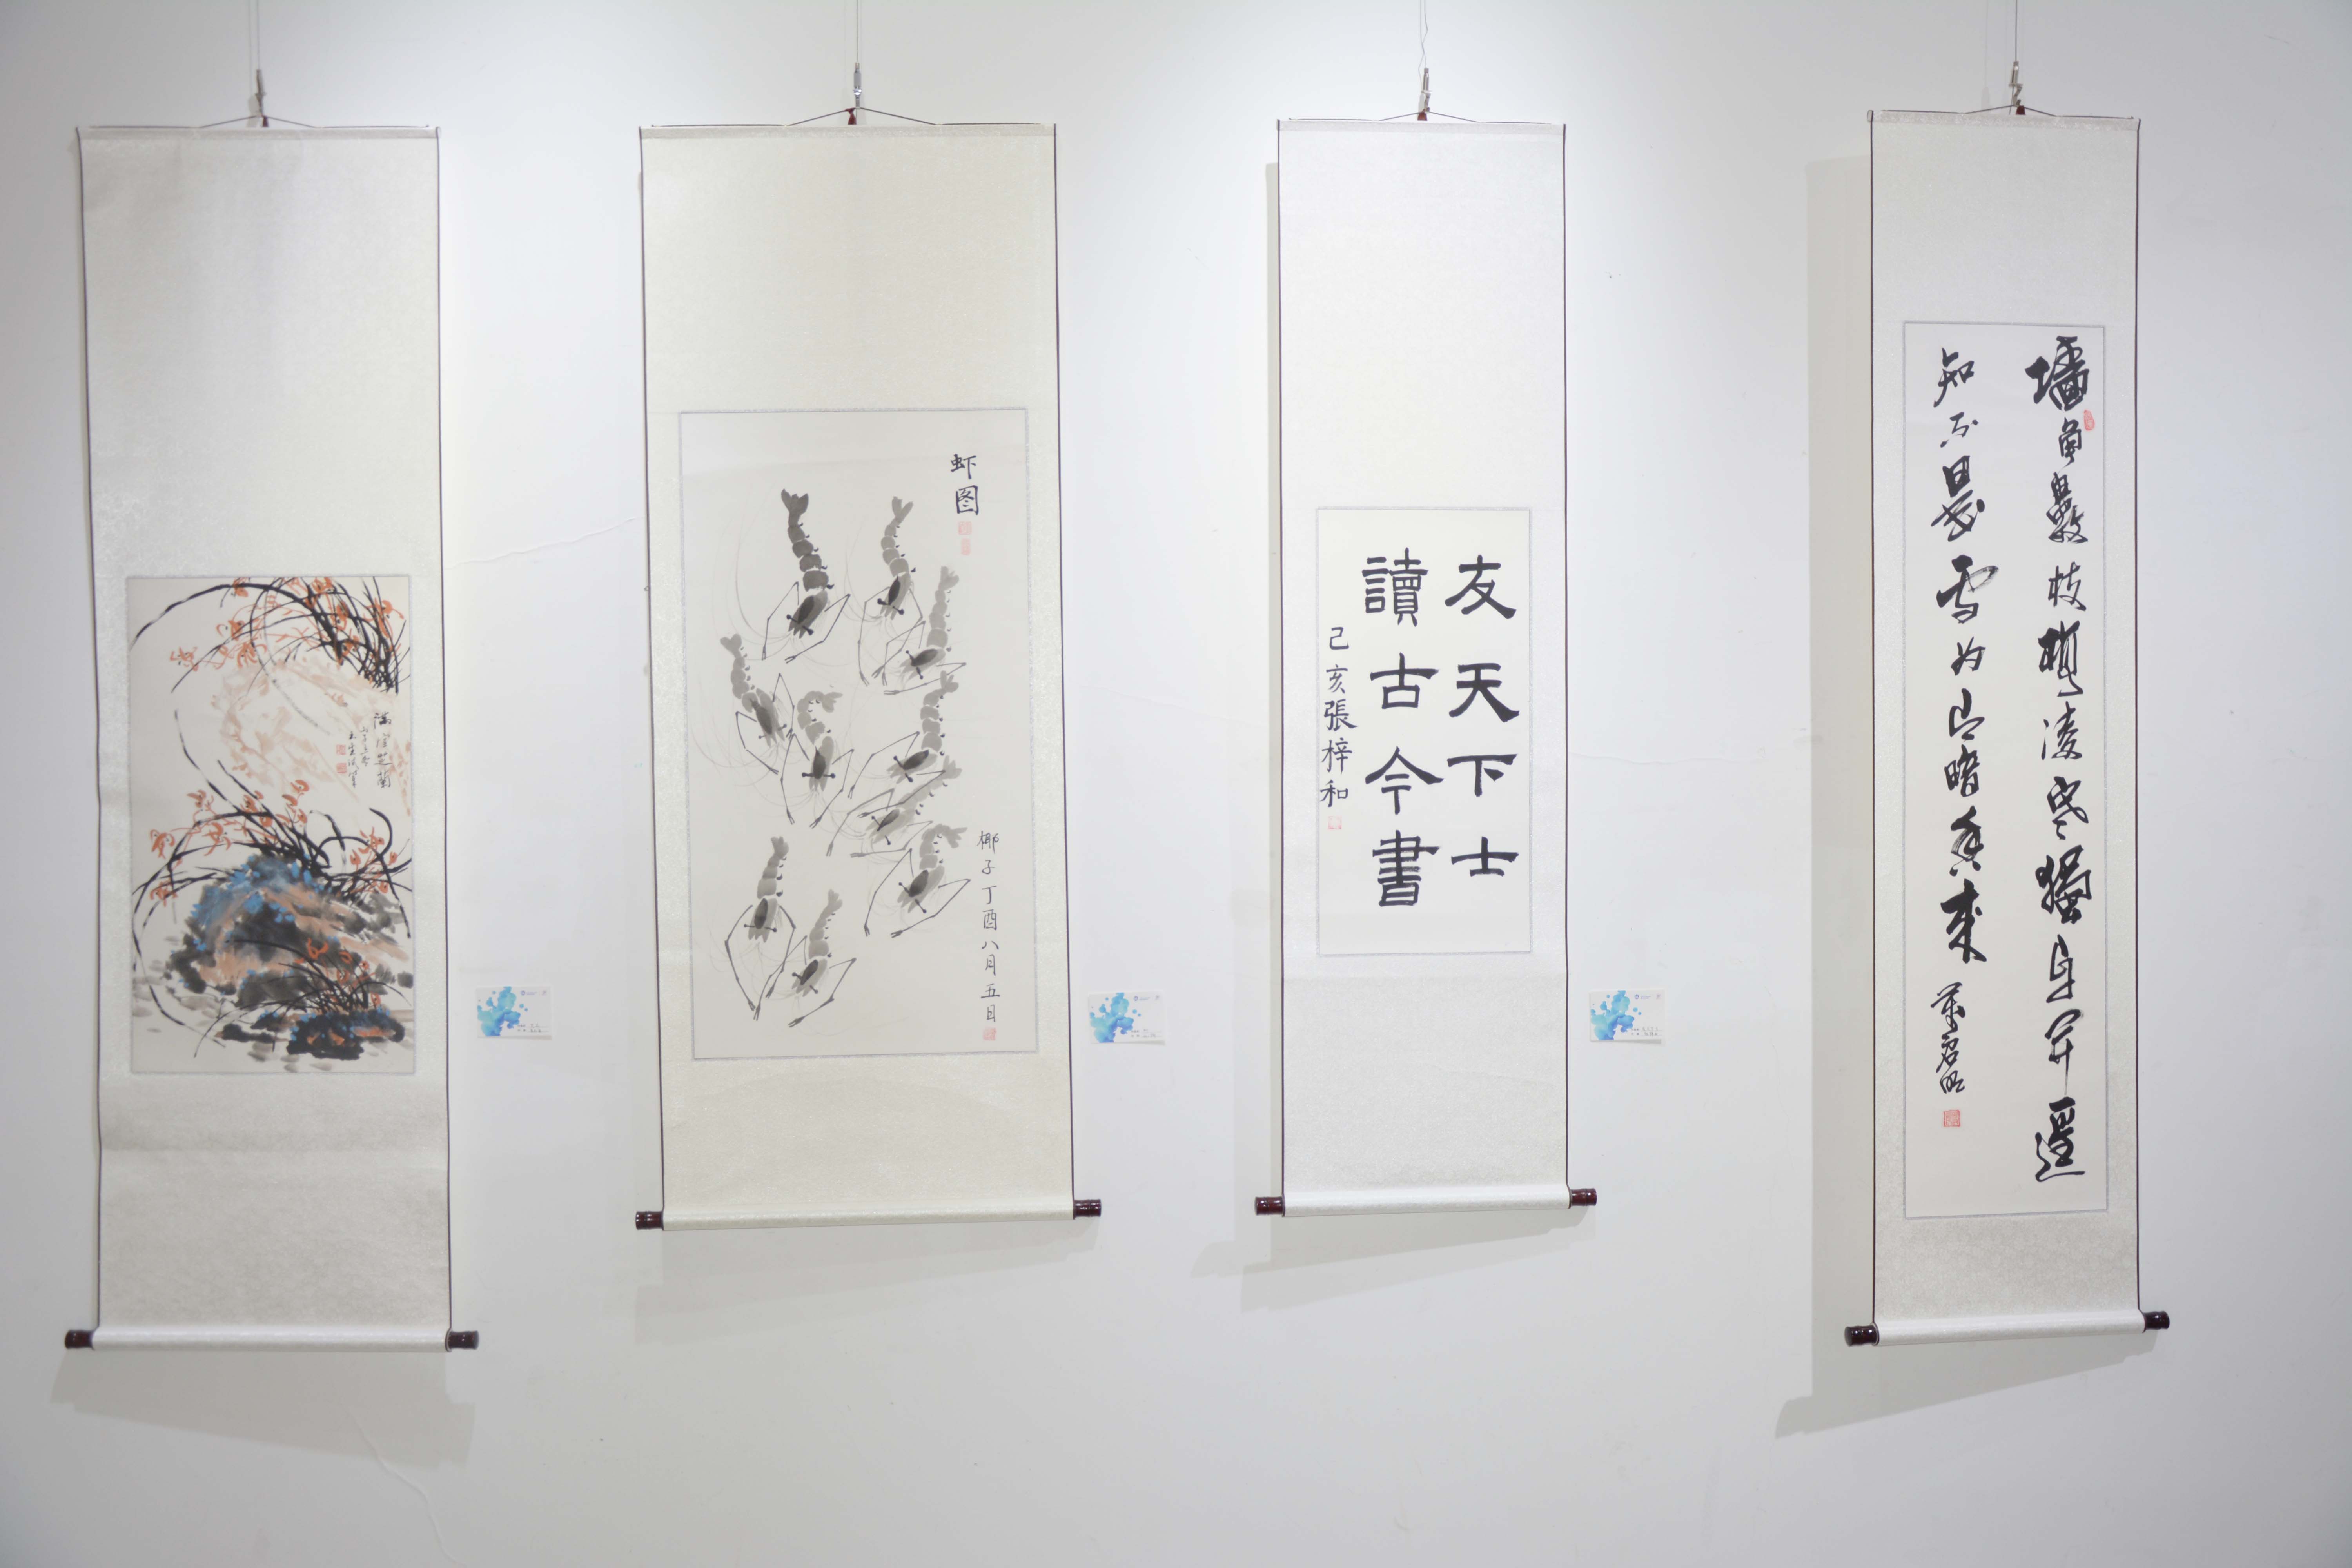 芝蘭
虾图
椰子丁酉八月五日
友天下士
讀古今書
己亥張梓和
墙角數枝梅凌寒獨自開遥
知不是雪为有暗香来